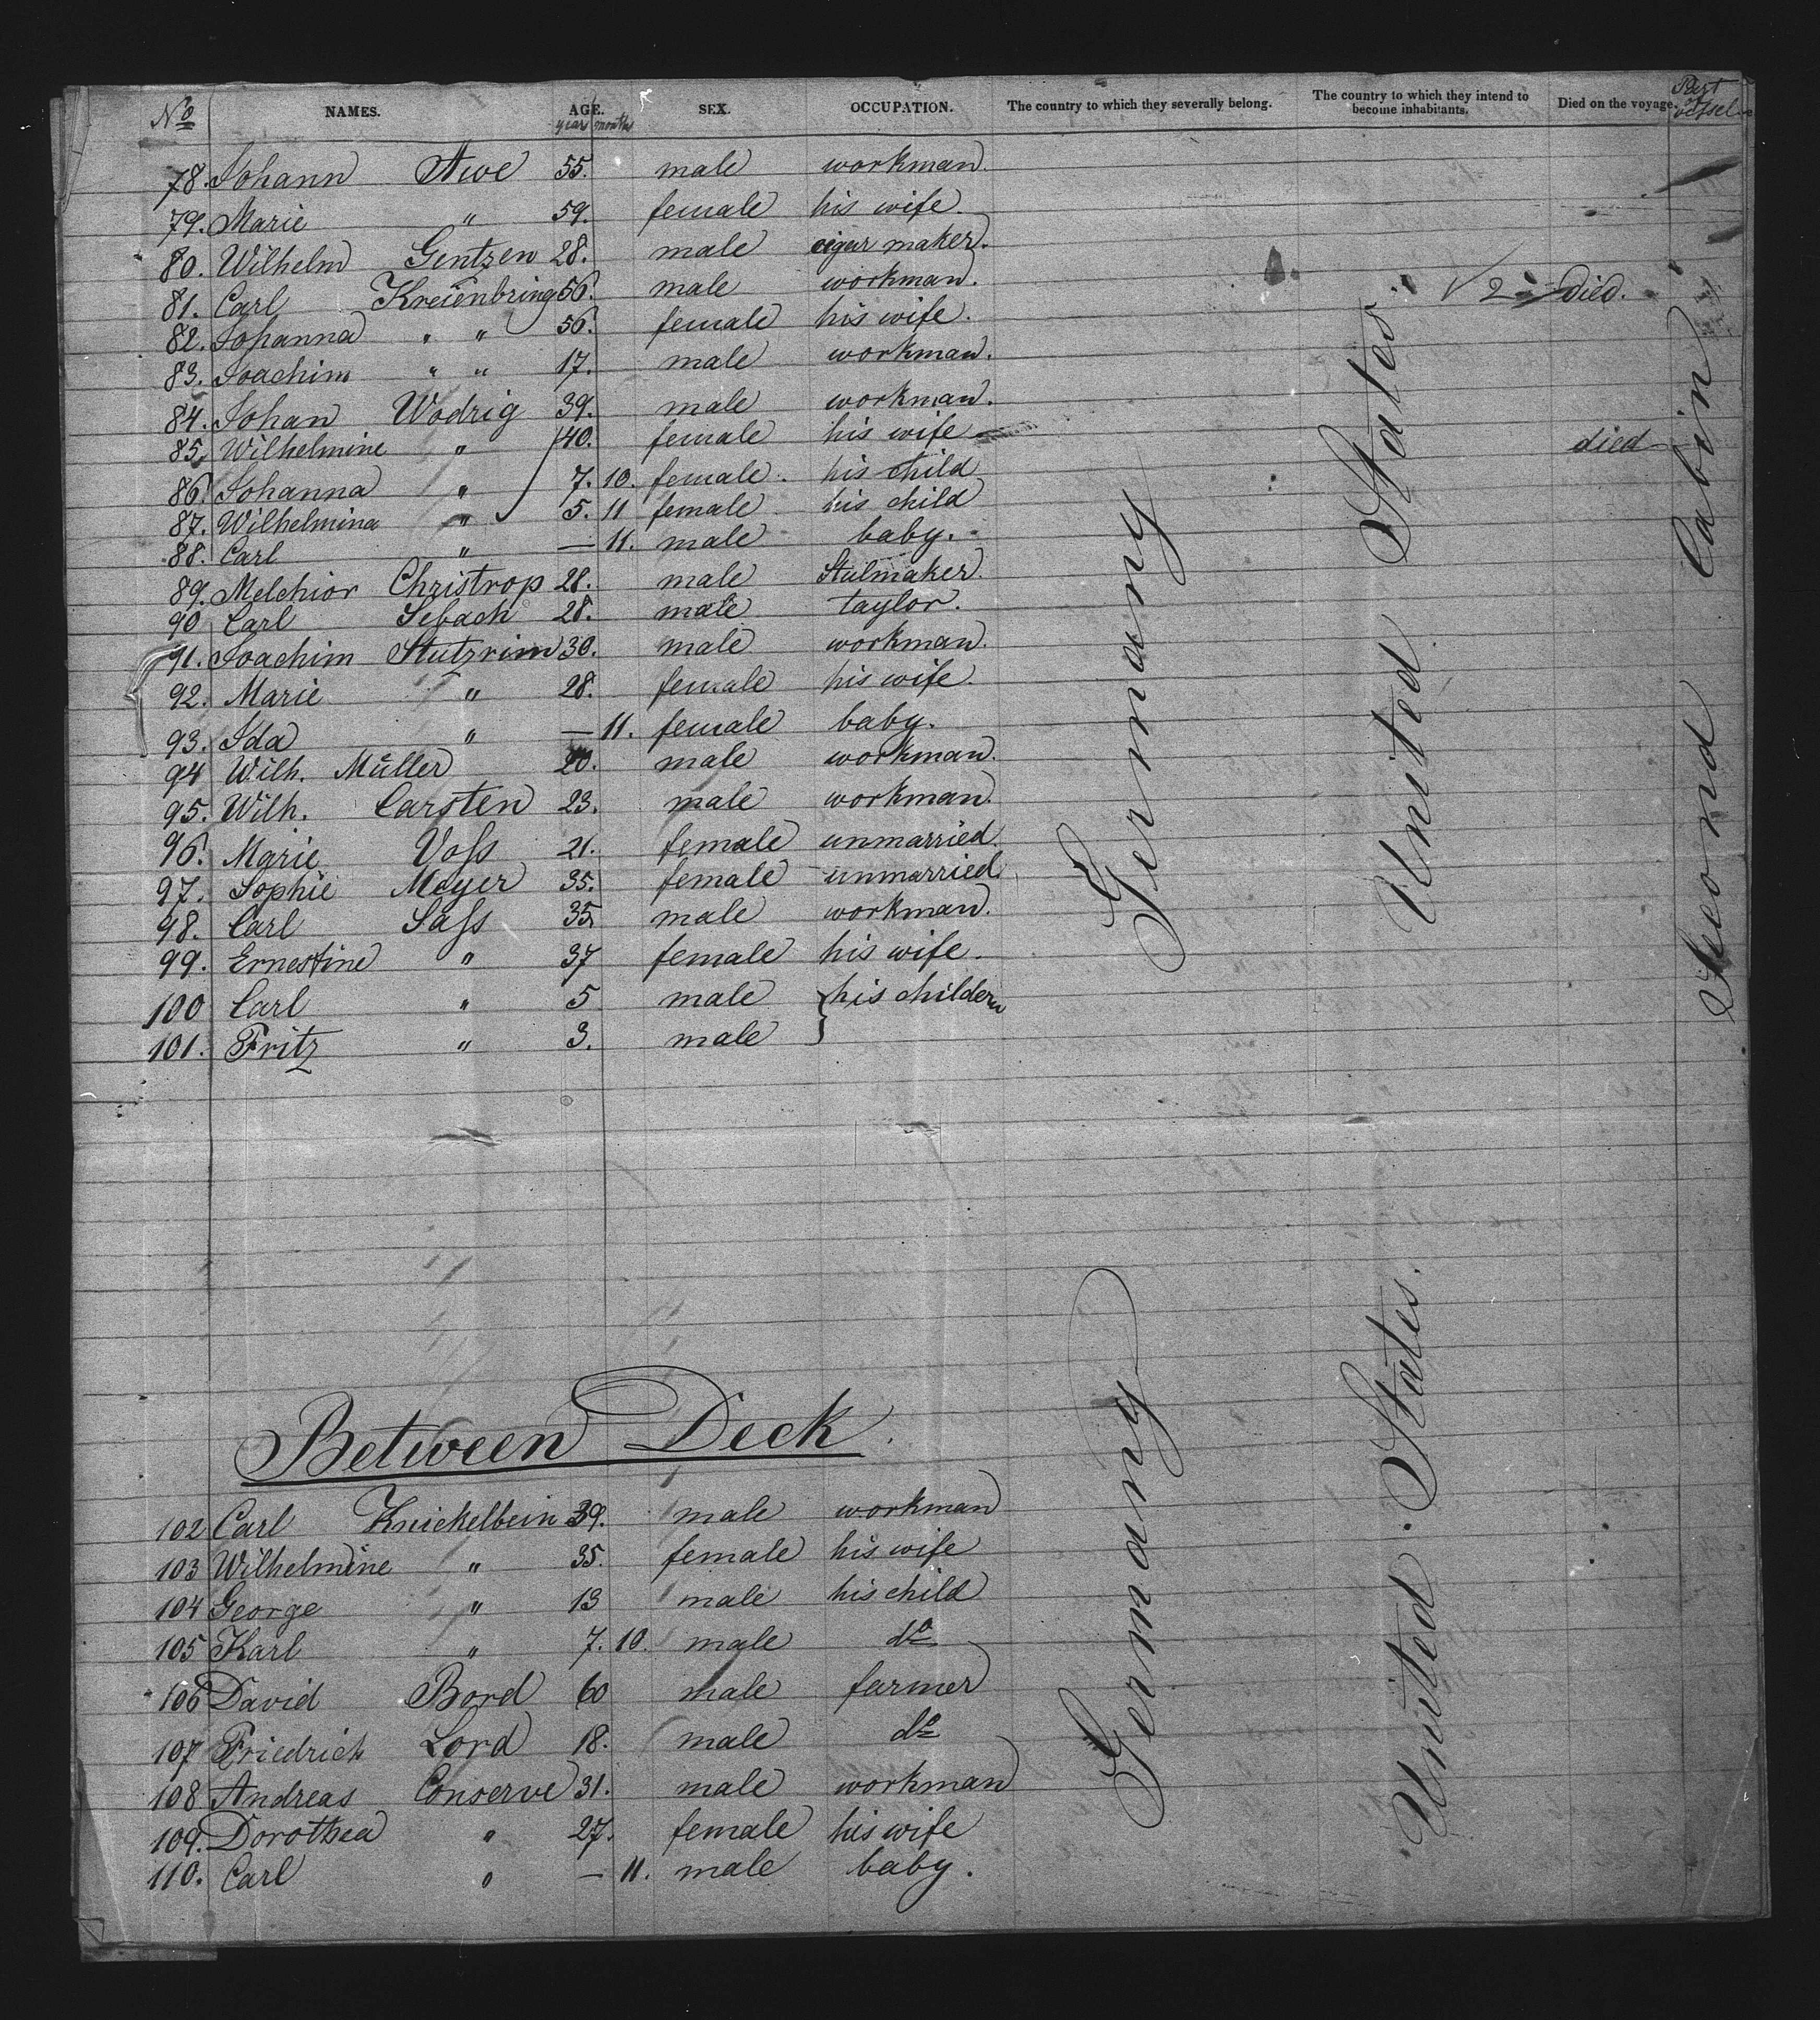 No NAMES. AGE. SEX. OCCUPATION. The country to which they severally belong. The country to which they intend to become inhabitants. Died on the voyage. Part of vessel
year month
78. Johann Awe 55. male workman.
79. Marie " 59. female his wife.
80. Wilhelm Gentzen 28. male cigar maker.
81. Carl Kreienbring 56. male workman. √ 2 - died.
82. Johanna " " 56. female his wife.
83. Joachim " " 17. male workman.
84. Johan Wodrig 39. male workman.
85. Wilhelmine " 40. female his wife died
86. Johanna " 7. 10. female. his child
87. Wilhelmina " 5. 11 female his child
88. Carl " — 11. male baby.
89. Melchior Christrop 28. male Stulmaker.
90 Carl Sebach 28. male taylor.
91. Joachim Stutzrim 30. male workman.
92. Marie " 28. female his wife.
93. Ida " — 11. female baby.
94 Wilh. Müller 20. male workman.
95. Wilh. Carsten 23. male workman.
96. Marie Voss 21. female unmarried.
97. Sophie Meyer 35. female unmarried.
98. Carl Sass 35 male workman.
99. Ernestine " 37 female his wife.
100 Carl " 5 male } his childern
101. Fritz " 3. male
Germany
United States.
Second Cabin
Between Deck.
102 Carl Knickelbein 39. male workman
103 Wilhelmine " 35. female his wife
104 George " 13 male his child
105 Karl " 7. 10. male do
106 David Bord 60 male farmer
107 Friedrich Lord 18. male do
108 Andreas Conserve 31. male workman
109. Dorothea " 27. female his wife
110. Carl " — 11. male baby.
Germany
United States.